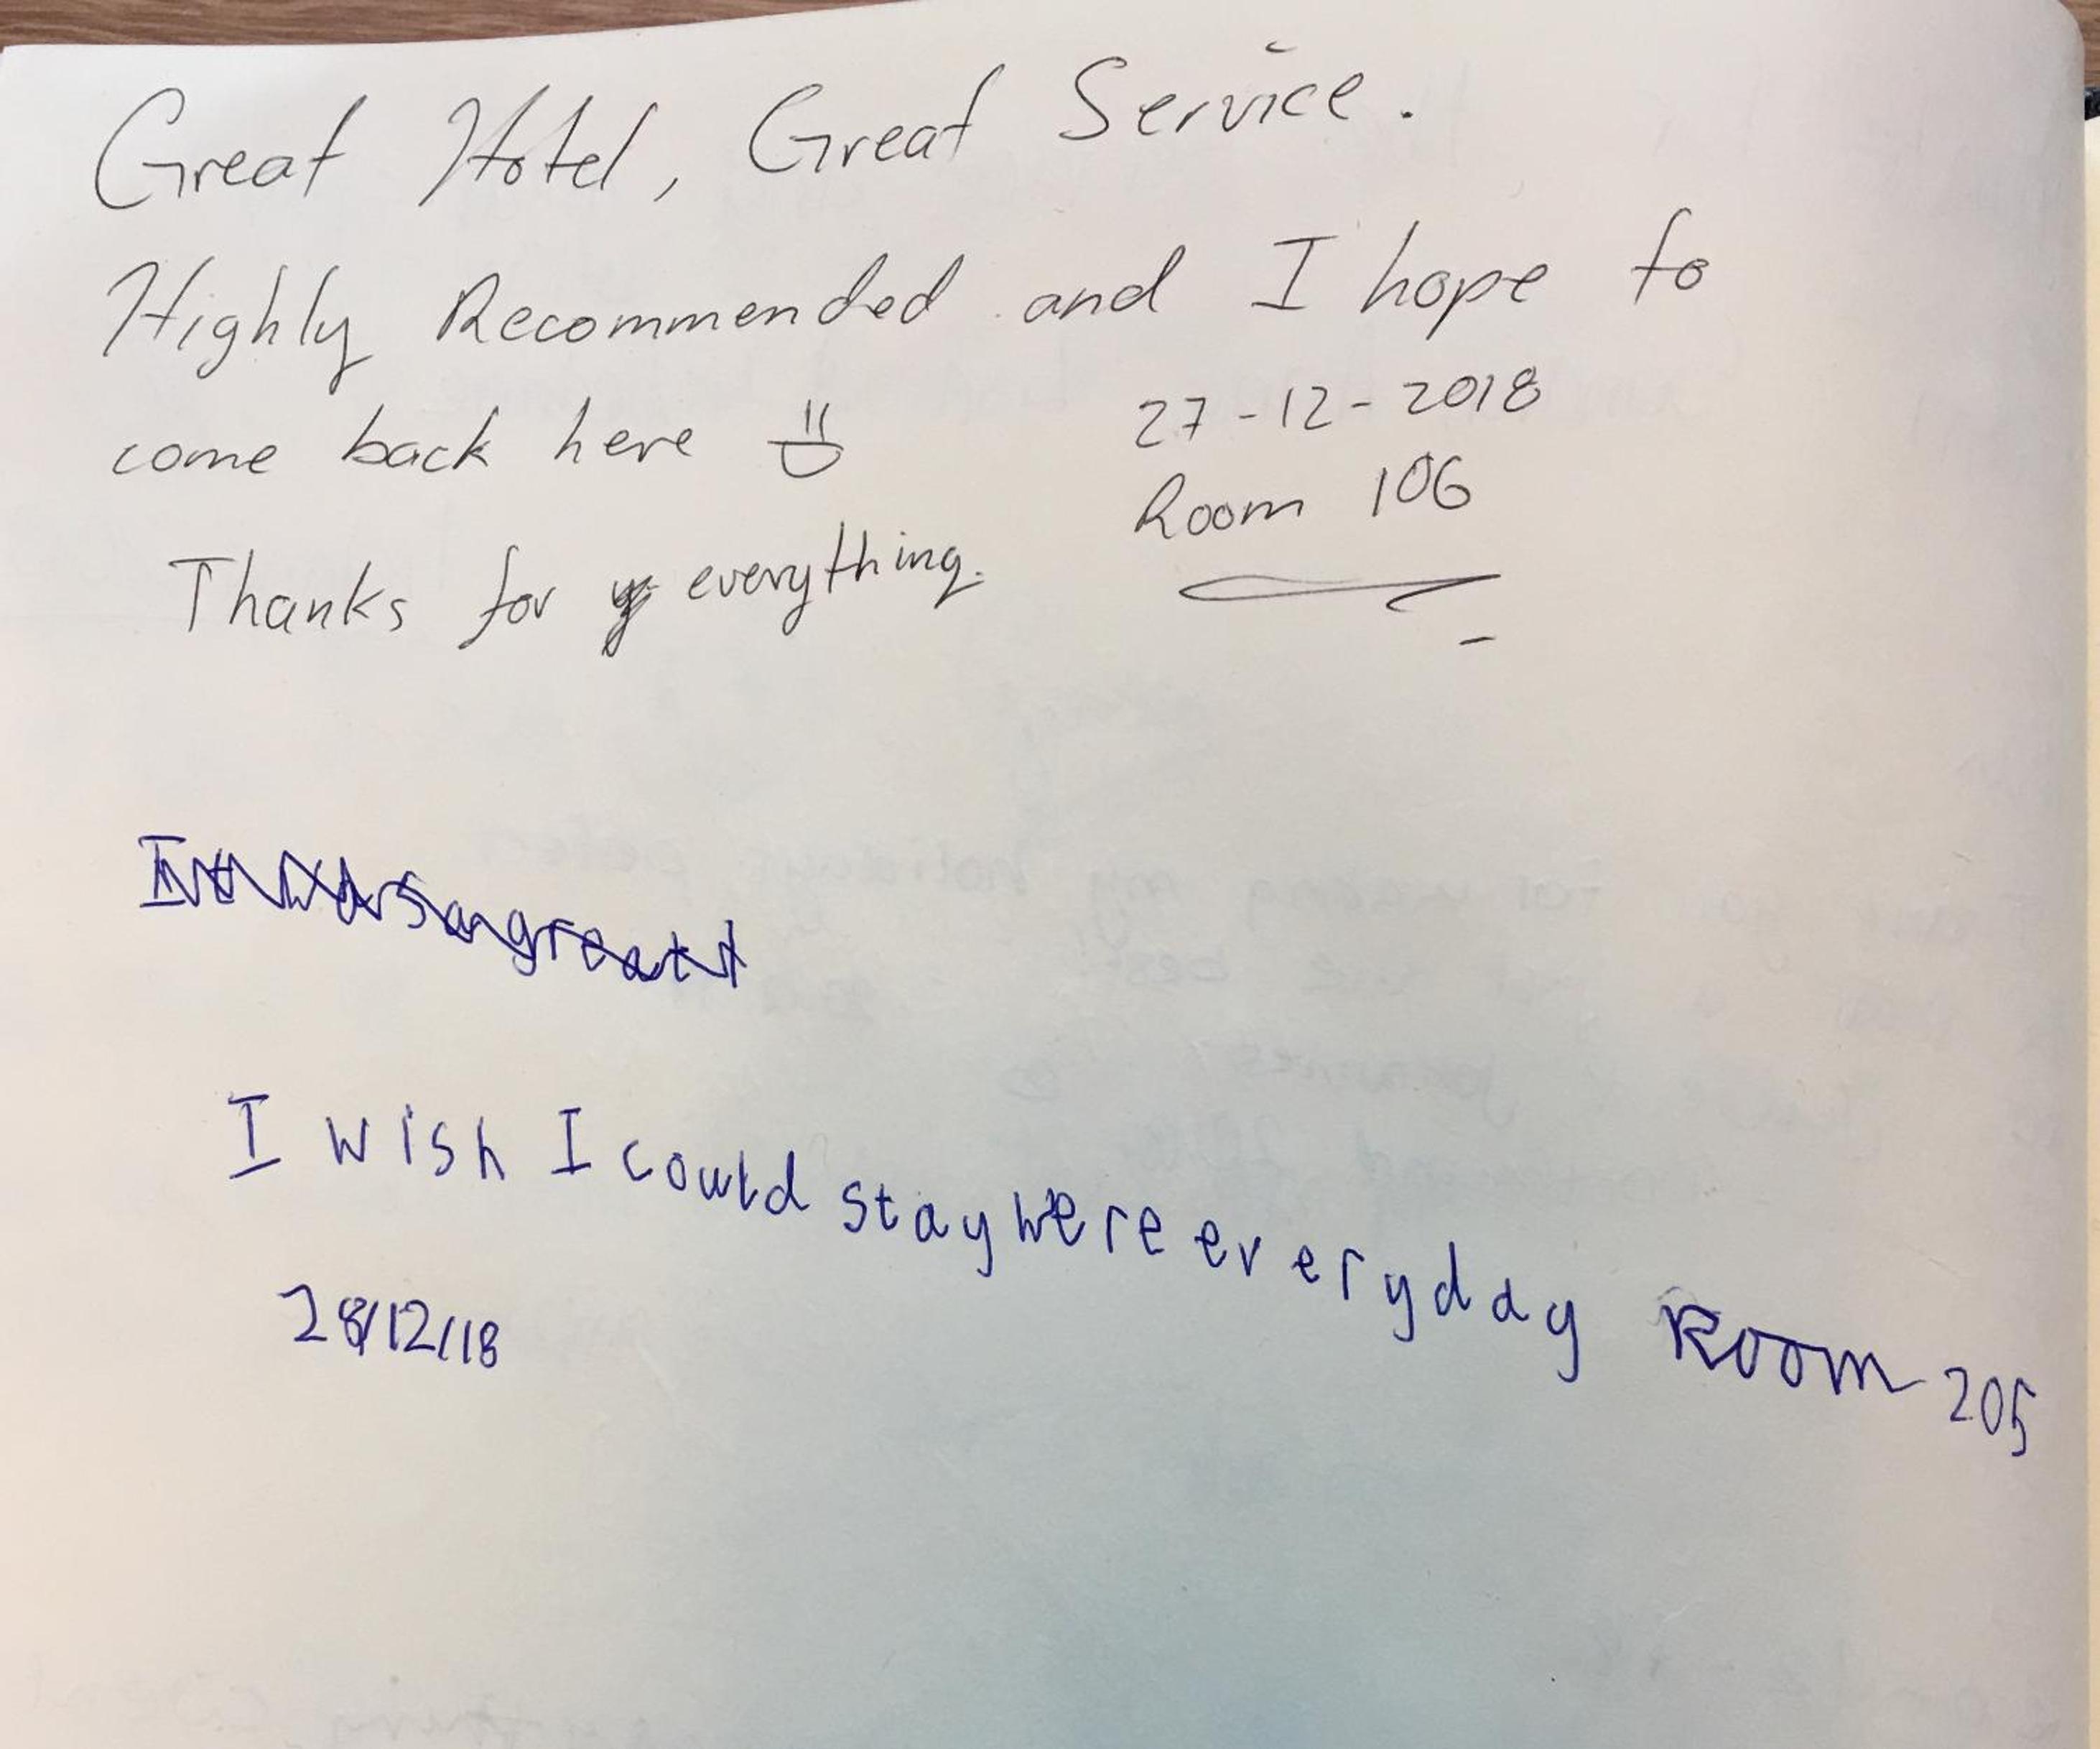 Great Hotel, Great Service.
Highly Recommended and I hope to
come back here
27-12-2018
Room 106
Thanks for everything.
It was a great
I wish I could stay here everyday Room 205
28/12/18